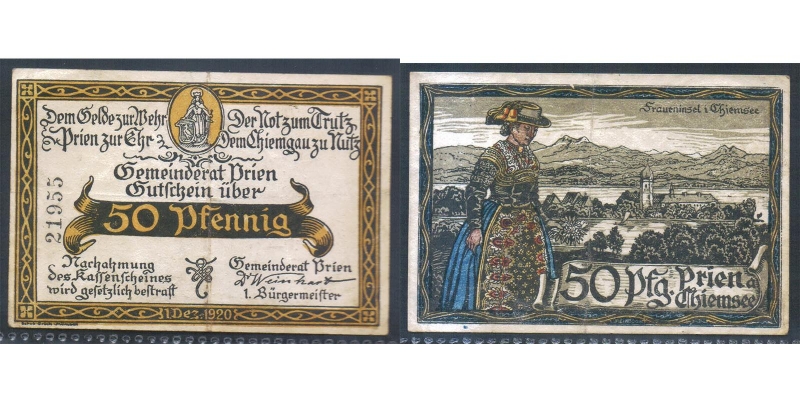 Dem Gelde zur Wehr Der Not zum Trutz
Prien zur Ehr Dem Chiemgau zu Nutz
Gemeinderat Prien
Gutschein über
50 Pfennig
21955
Nachahmung
des Kassenscheines
wird gesetzlich bestraft
Gemeinderat Prien
Dr Weinhart
1. Bürgermeister
1 Dez. 1920
Fraueninsel i. Chiemsee
50 Pfg. Prien a
Chiemsee